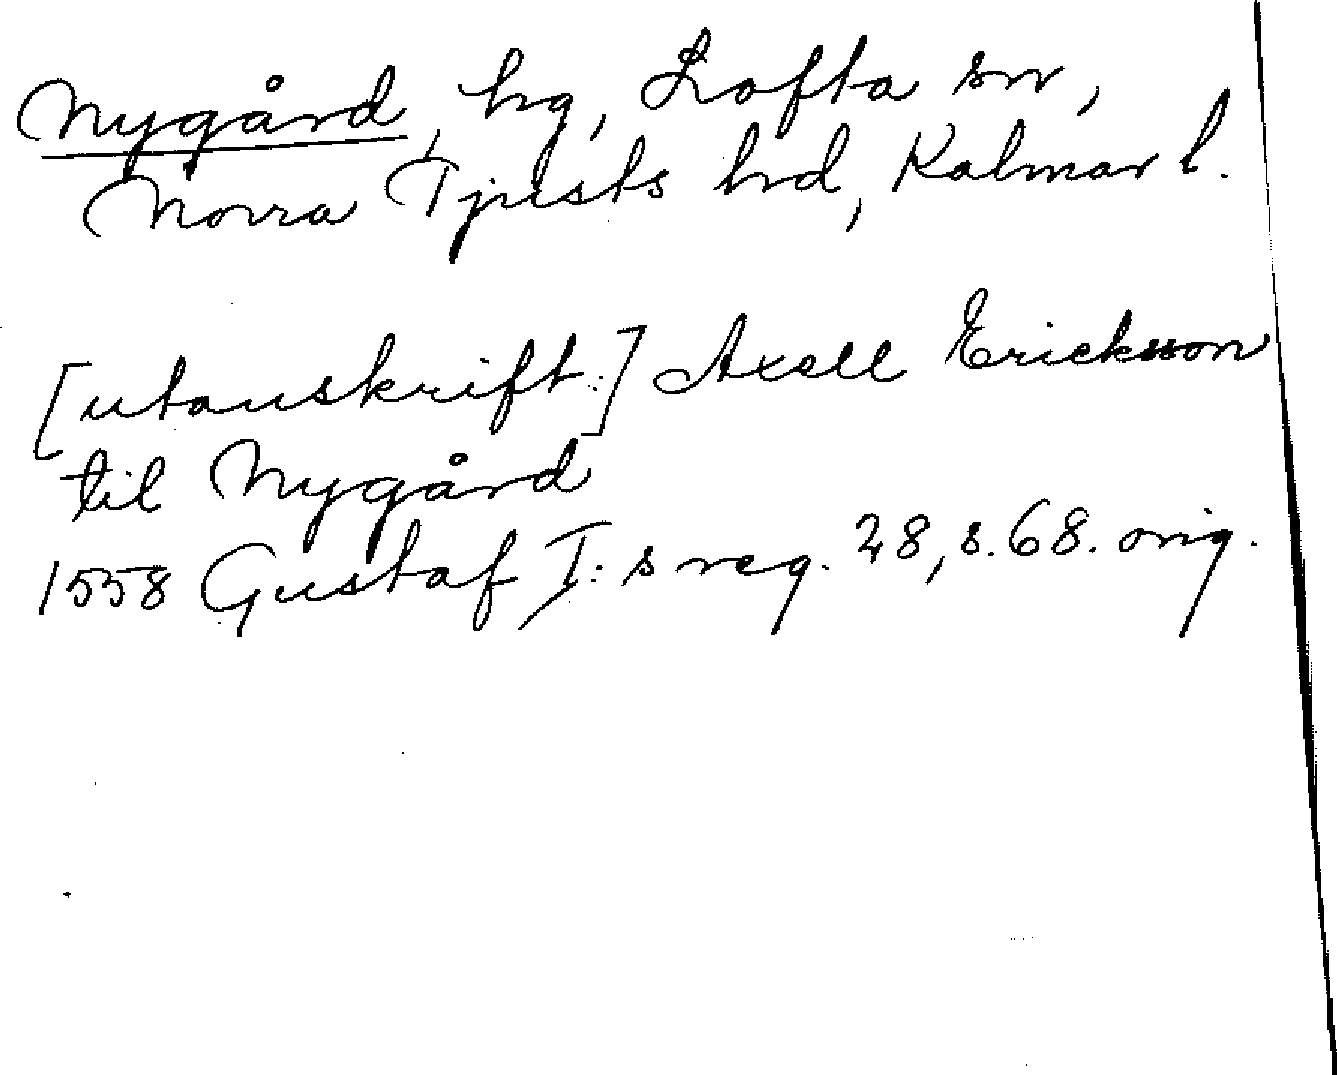 Nygård, hg, Lofta sn,
Norra Tjusts hd, Kalmar l.
[utanskrift:] Axell Ericksson
til Nygård
1558 Gustaf I:s reg. 28, s. 68. orig.